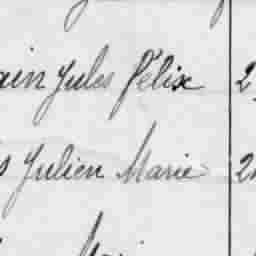 ain Jules Félix 2
s Julien Marie 2